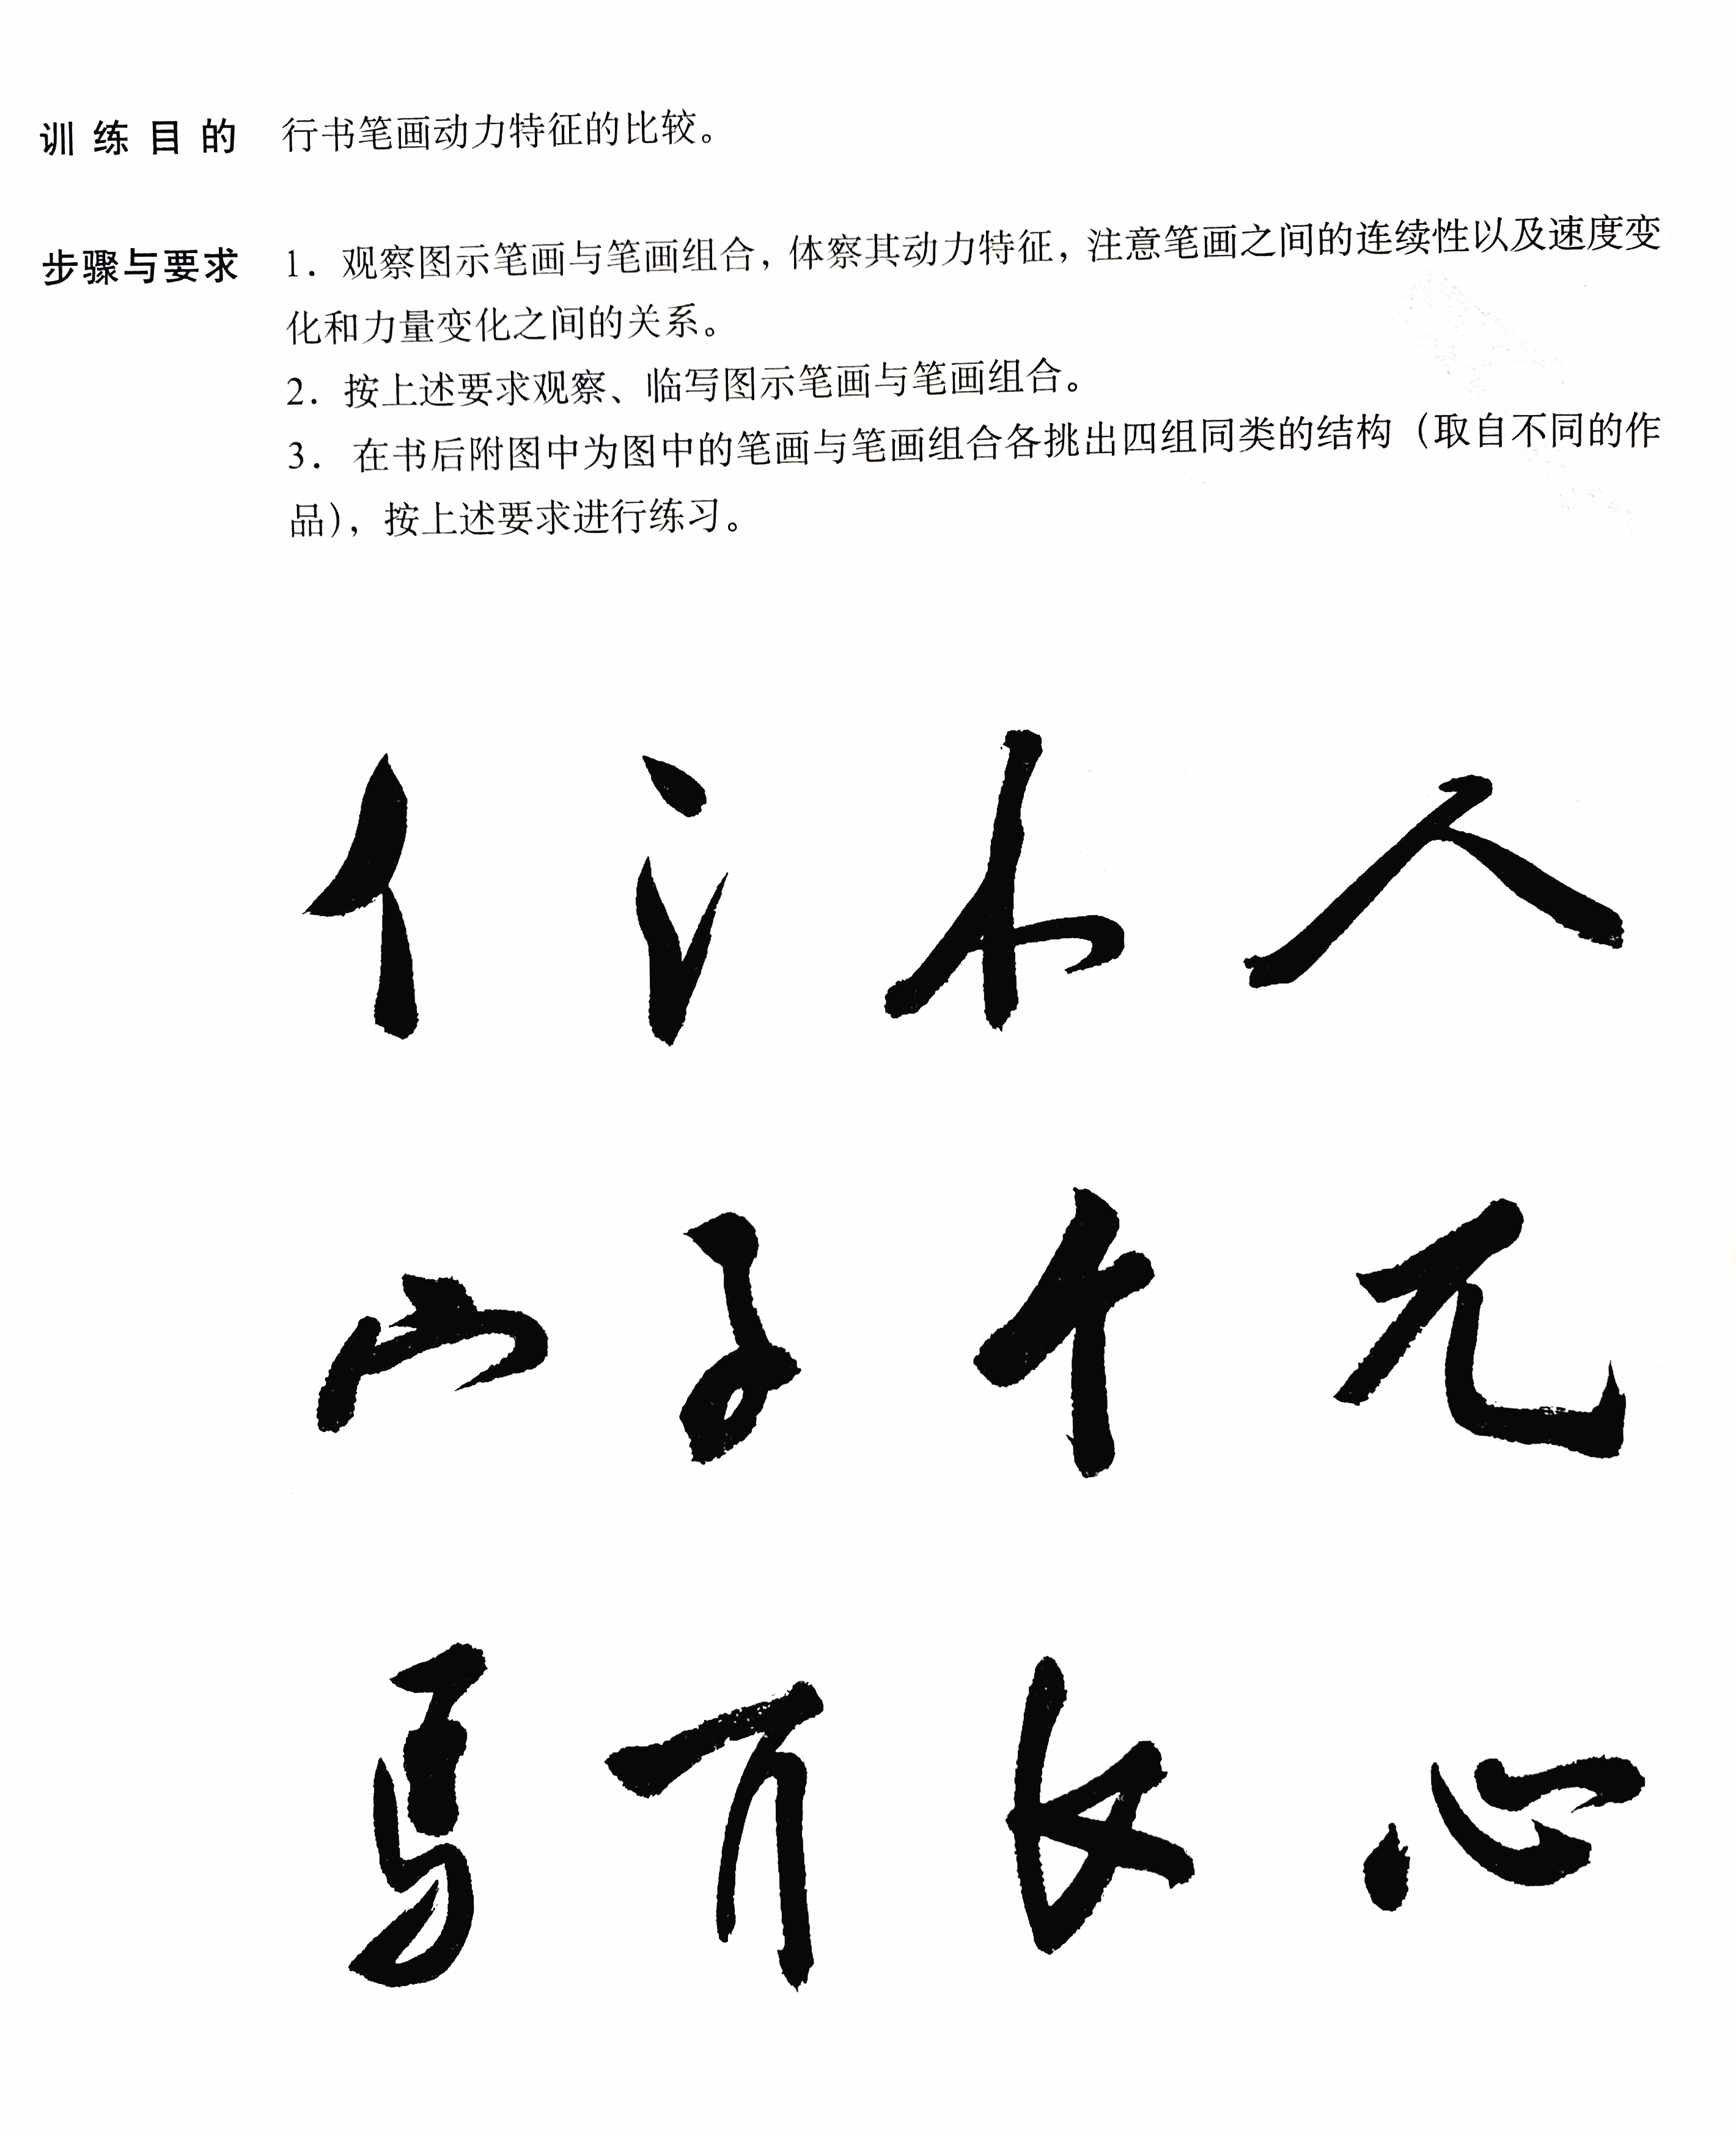 训练目的 行书笔画动力特征的比较。
步骤与要求 1. 观察图示笔画与笔画组合，体察其动力特征，注意笔画之间的连续性以及速度变
化和力量变化之间的关系。
2. 按上述要求观察、临写图示笔画与笔画组合。
3. 在书后附图中为图中的笔画与笔画组合各挑出四组同类的结构（取自不同的作
品），按上述要求进行练习。
亻氵 人
宀 子 兀
心